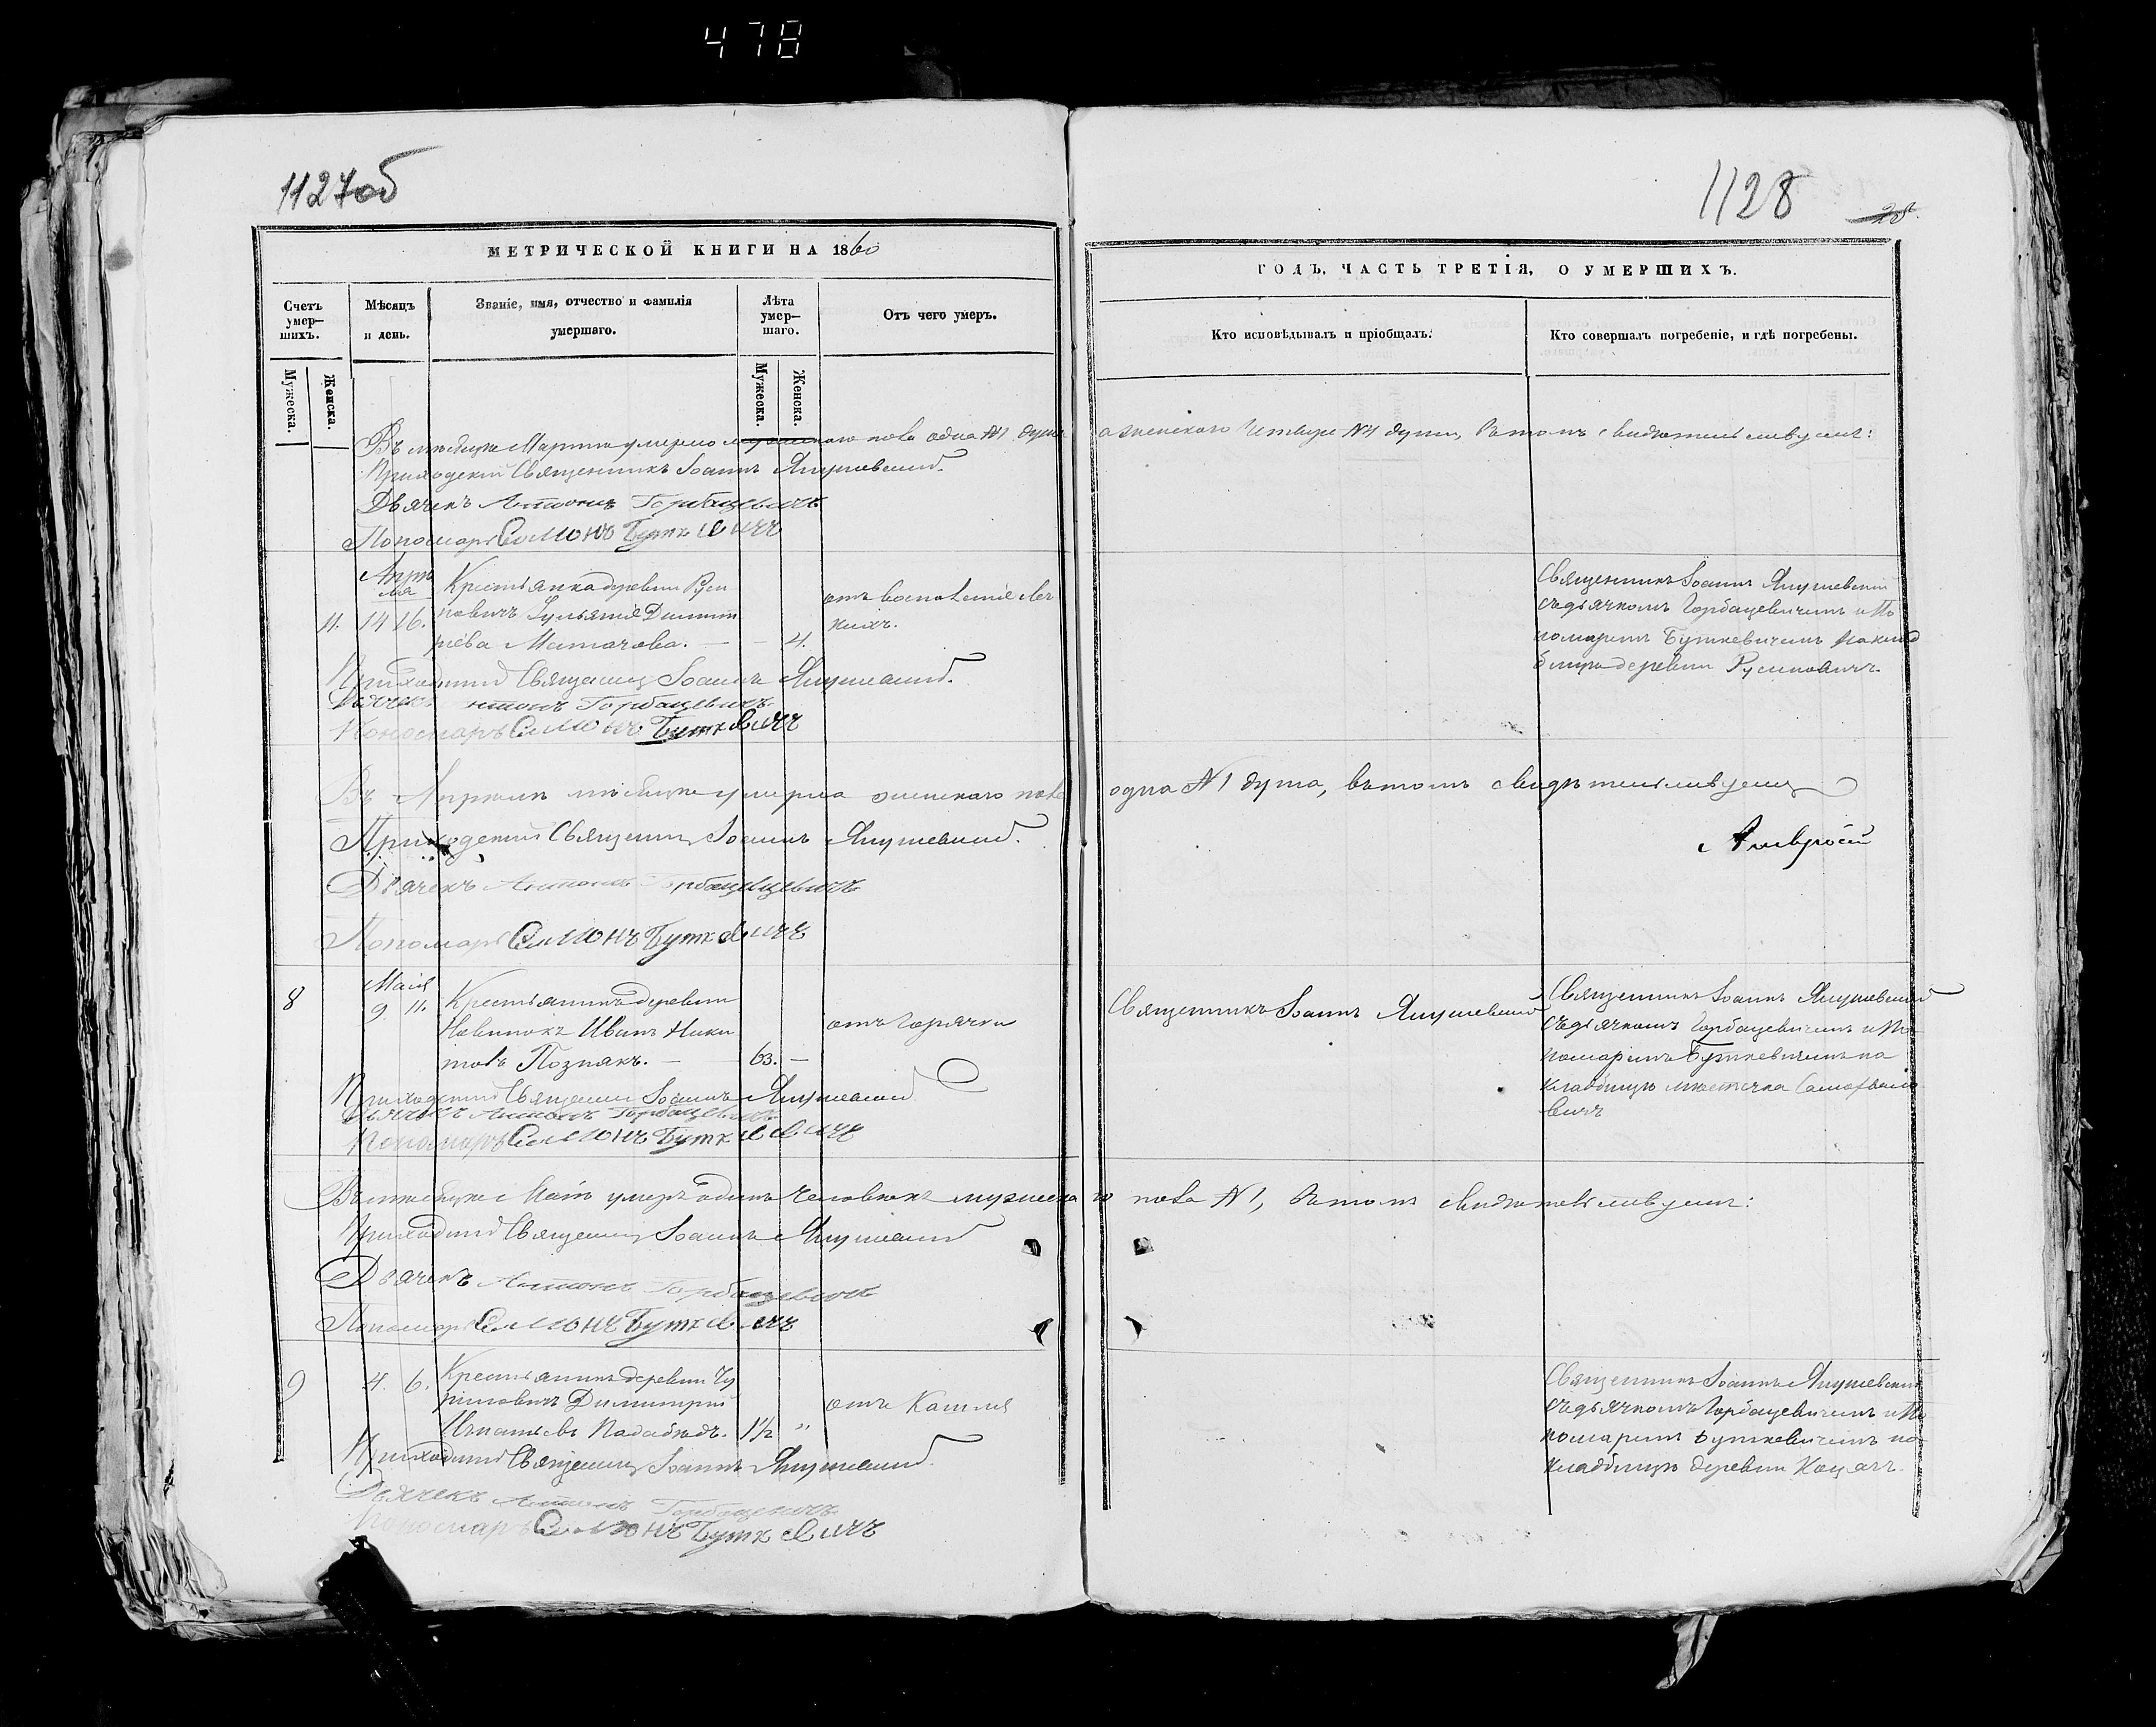 478
1127об
1128
28
МЕТРИЧЕСКОЙ КНИГИ НА 1860
ГОДЪ, ЧАСТЬ ТРЕТІЯ, О УМЕРШИХЪ.
Счетъ умер-шихъ.
Мѣсяцъ и день.
Званіе, имя, отчество и фамилія умершаго.
Лѣта умер-шаго.
Отъ чего умеръ.
Кто исповѣдывалъ и пріобщалъ.
Кто совершалъ погребеніе, и гдѣ погребены.
Мужеска.
Женска.
Мужеска.
Женска.
Въ мѣсяцѣ Мартѣ умерло мужескаго пола одна №1 душа
а женскаго четыре №4 души, въ томъ свидѣтельствуемъ:
Приходскій Священникъ Іоаннъ Янушевскій.
Дьячекъ Антонъ Горбацевичъ
Пономарь Симонъ Буткевичъ
Апрѣля
11. 14 16.
Крестьянка деревни Русиновичъ Димитріева 4.
отъ воспаленія легкихъ.
Священникъ Іоаннъ Янушевскій
съ дьячкомъ Горбацевичемъ и По
номаремъ Буткевичемъ на клад
бищѣ деревни Русиновичъ.
Приходскій Священникъ Іоаннъ Янушевскій.
Дьячекъ Антонъ Горбацевичъ
Пономарь Симонъ Буткевичъ
Въ Апрѣлѣ мѣсяцѣ умерла женскаго пола
одна №1 душа, въ томъ свидѣтельствуемъ
Приходскій Священникъ Іоаннъ Янушевскій.
Дьячекъ Антонъ Горбацевичъ
Пономарь Симонъ Буткевичъ
8
Маія
9. 11.
Крестьянинъ деревни
Новинокъ Иванъ Ники
товъ Познякъ. — 63. —
отъ горячки
Священникъ Іоаннъ Янушевскій
Священникъ Іоаннъ Янушевскій
съ дьячкомъ Горбацевичемъ и По
номаремъ Буткевичемъ на
кладбищѣ мѣстечка Самохвало
вичъ
Приходскій Священникъ Іоаннъ Янушевскій
Дьячекъ Антонъ Горбацевичъ
Пономарь Симонъ Буткевичъ
Въ мѣсяцѣ Маіѣ умеръ одинъ человѣкъ мужеска
го пола №1, въ томъ свидѣтельствуемъ:
Приходскій Священникъ Іоаннъ Янушевскій
Дьячекъ Антонъ Горбацевичъ
Пономарь Симонъ Буткевичъ
9
4. 6.
Крестьянинъ деревни
Димитрій
Игнатьевъ 1½ "
отъ Кашля
Священникъ Іоаннъ Янушевскій
съ дьячкомъ Горбацевичемъ и По
номаремъ Буткевичемъ на
кладбищѣ деревни
Приходскій Священникъ Іоаннъ Янушевскій.
Дьячекъ Антонъ Горбацевичъ
Пономарь Симонъ Буткевичъ